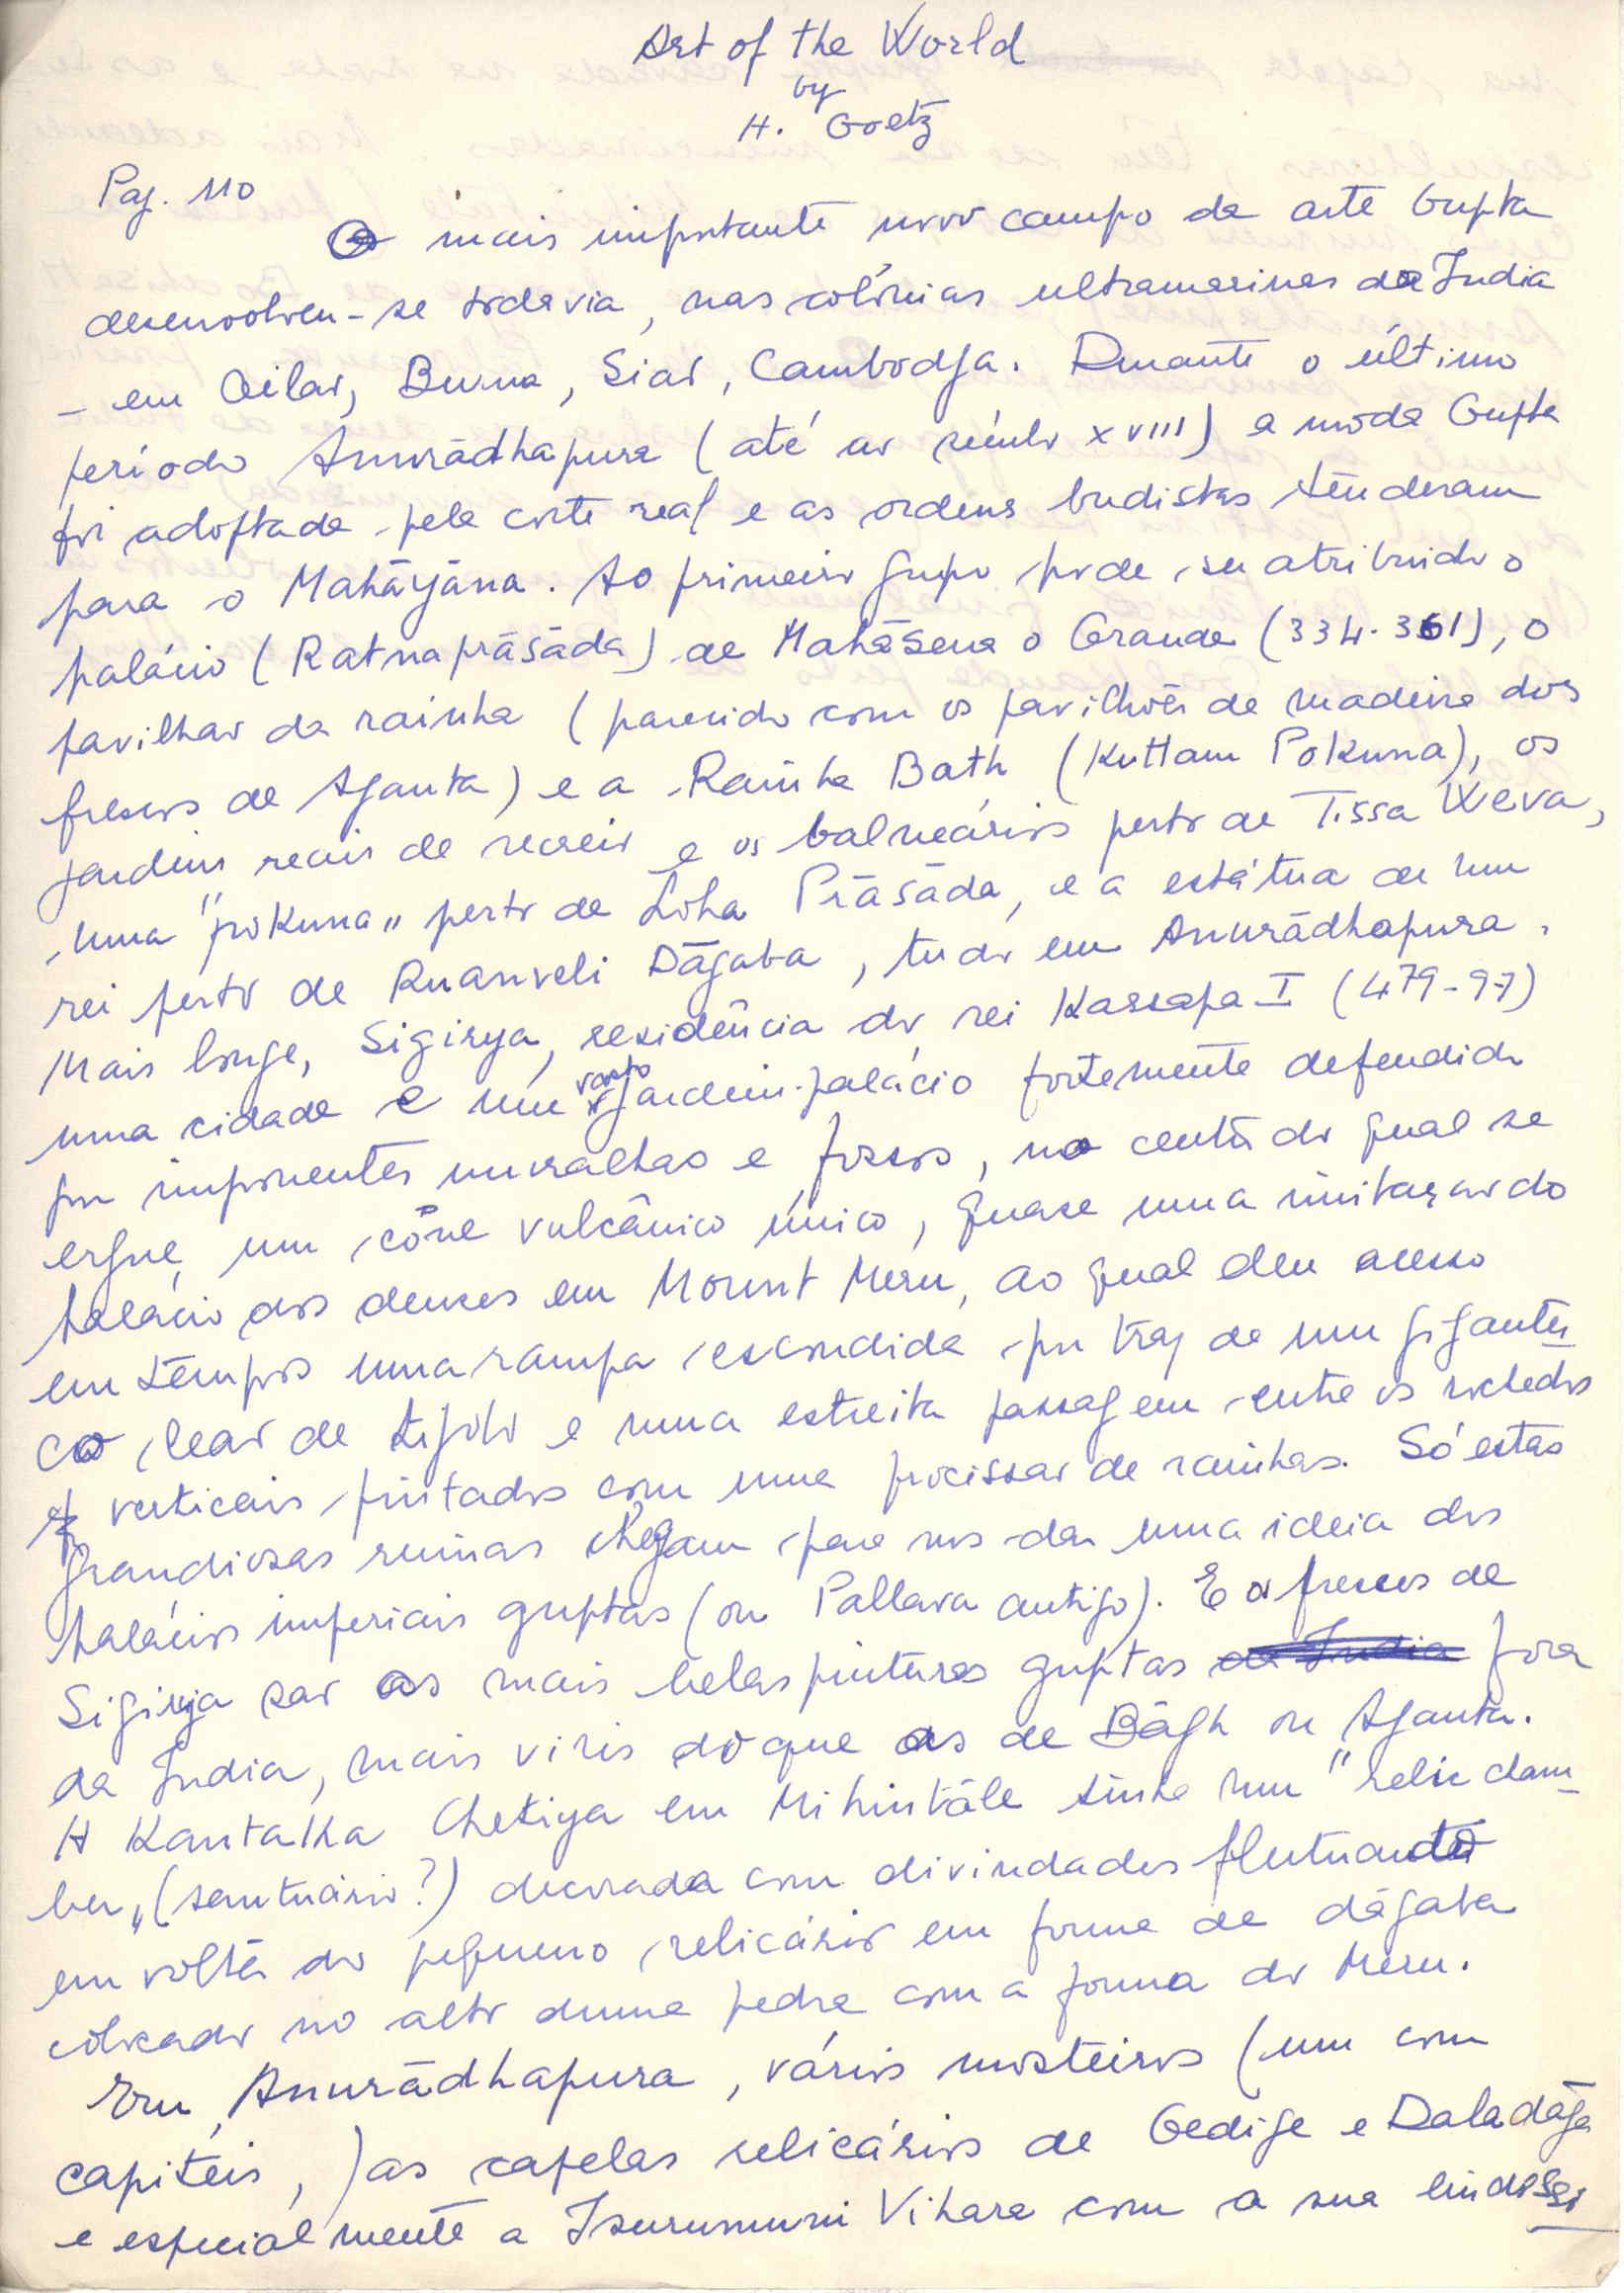 Art of the World
by
H. Goetz
Pag. 110
O mais importante novo campo da arte Gupta
desenvolveu-se todavia, nas colónias ultramarinas da India
- em Ceilao, Burma, Siao, Cambodja. Durante o último
periodo Anurādhapura (até ao século XVIII) a moda Gupta
foi adoptada pela corte real e as ordens budistas tenderam
para o Mahāyāna. Ao primeiro grupo pode ser atribuido o
palácio (Ratnaprāsāda) de Mahāsena o Grande (334-361), o
pavilhao da rainha (parecido com os pavilhões de madeira dos
frescos de Ajanta) e a Rainha Bath (Kuttam Pokuna), os
jardins reais de recreio e os balneários perto de Tissa Weva,
uma "pokuna" perto de Loha Prāsāda, e a estátua de um
rei perto de Ruanveli Dāgaba, tudo em Anurādhapura.
Mais longe, Sigirya, residência do rei Kassapa I (479-97)
uma cidade e um vasto jardim-palácio fortemente defendido
por imponentes muralhas e fossos, no centro do qual se
ergue um cone vulcânico único, quase uma imitaçao do
palácio dos deuses em Mount Meru, ao qual deu acesso
em tempos uma rampa escondida por traz de um gigantes
co leao de tijolo e uma estreita passagem entre os rochedos
verticais pintados com uma procissao de rainhas. Só estas
grandiosas ruinas chegam para nos dar uma ideia dos
palácios imperiais guptas (ou Pallava antigo). E os frescos de
Sigirya sao as mais belas pinturas guptas da India fora
da India, mais viris do que as de Bāgh ou Ajanta.
A Kantaka Chetiya em Mihintāle tinha um "relic cham-
ber" (santuário?) decorada com divindades flutuando
em volta do pequeno relicário em forma de dāgaba
colocado no alto duma pedra com a forma do Meru.
Em Anurādhapura, vários mosteiros (um com
capiteis,) as capelas relicários de Gedige e Daladāge
e especialmente a Isurumuni Vihara com a sua lindissi